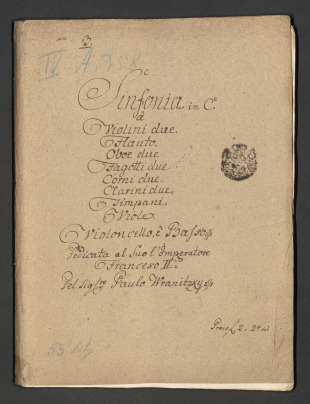 3.
IV A 398
Sinfonia in C.
à
Violini due.
Flauto.
Oboe due
Fagotti due
Corni due
Clarini due,
Timpani.
Viole.
Violoncello, è Basso
Dedicata al Suo l'Imperatore
Francesco II.
Del Sig. Paulo Wranitzky
2.
55